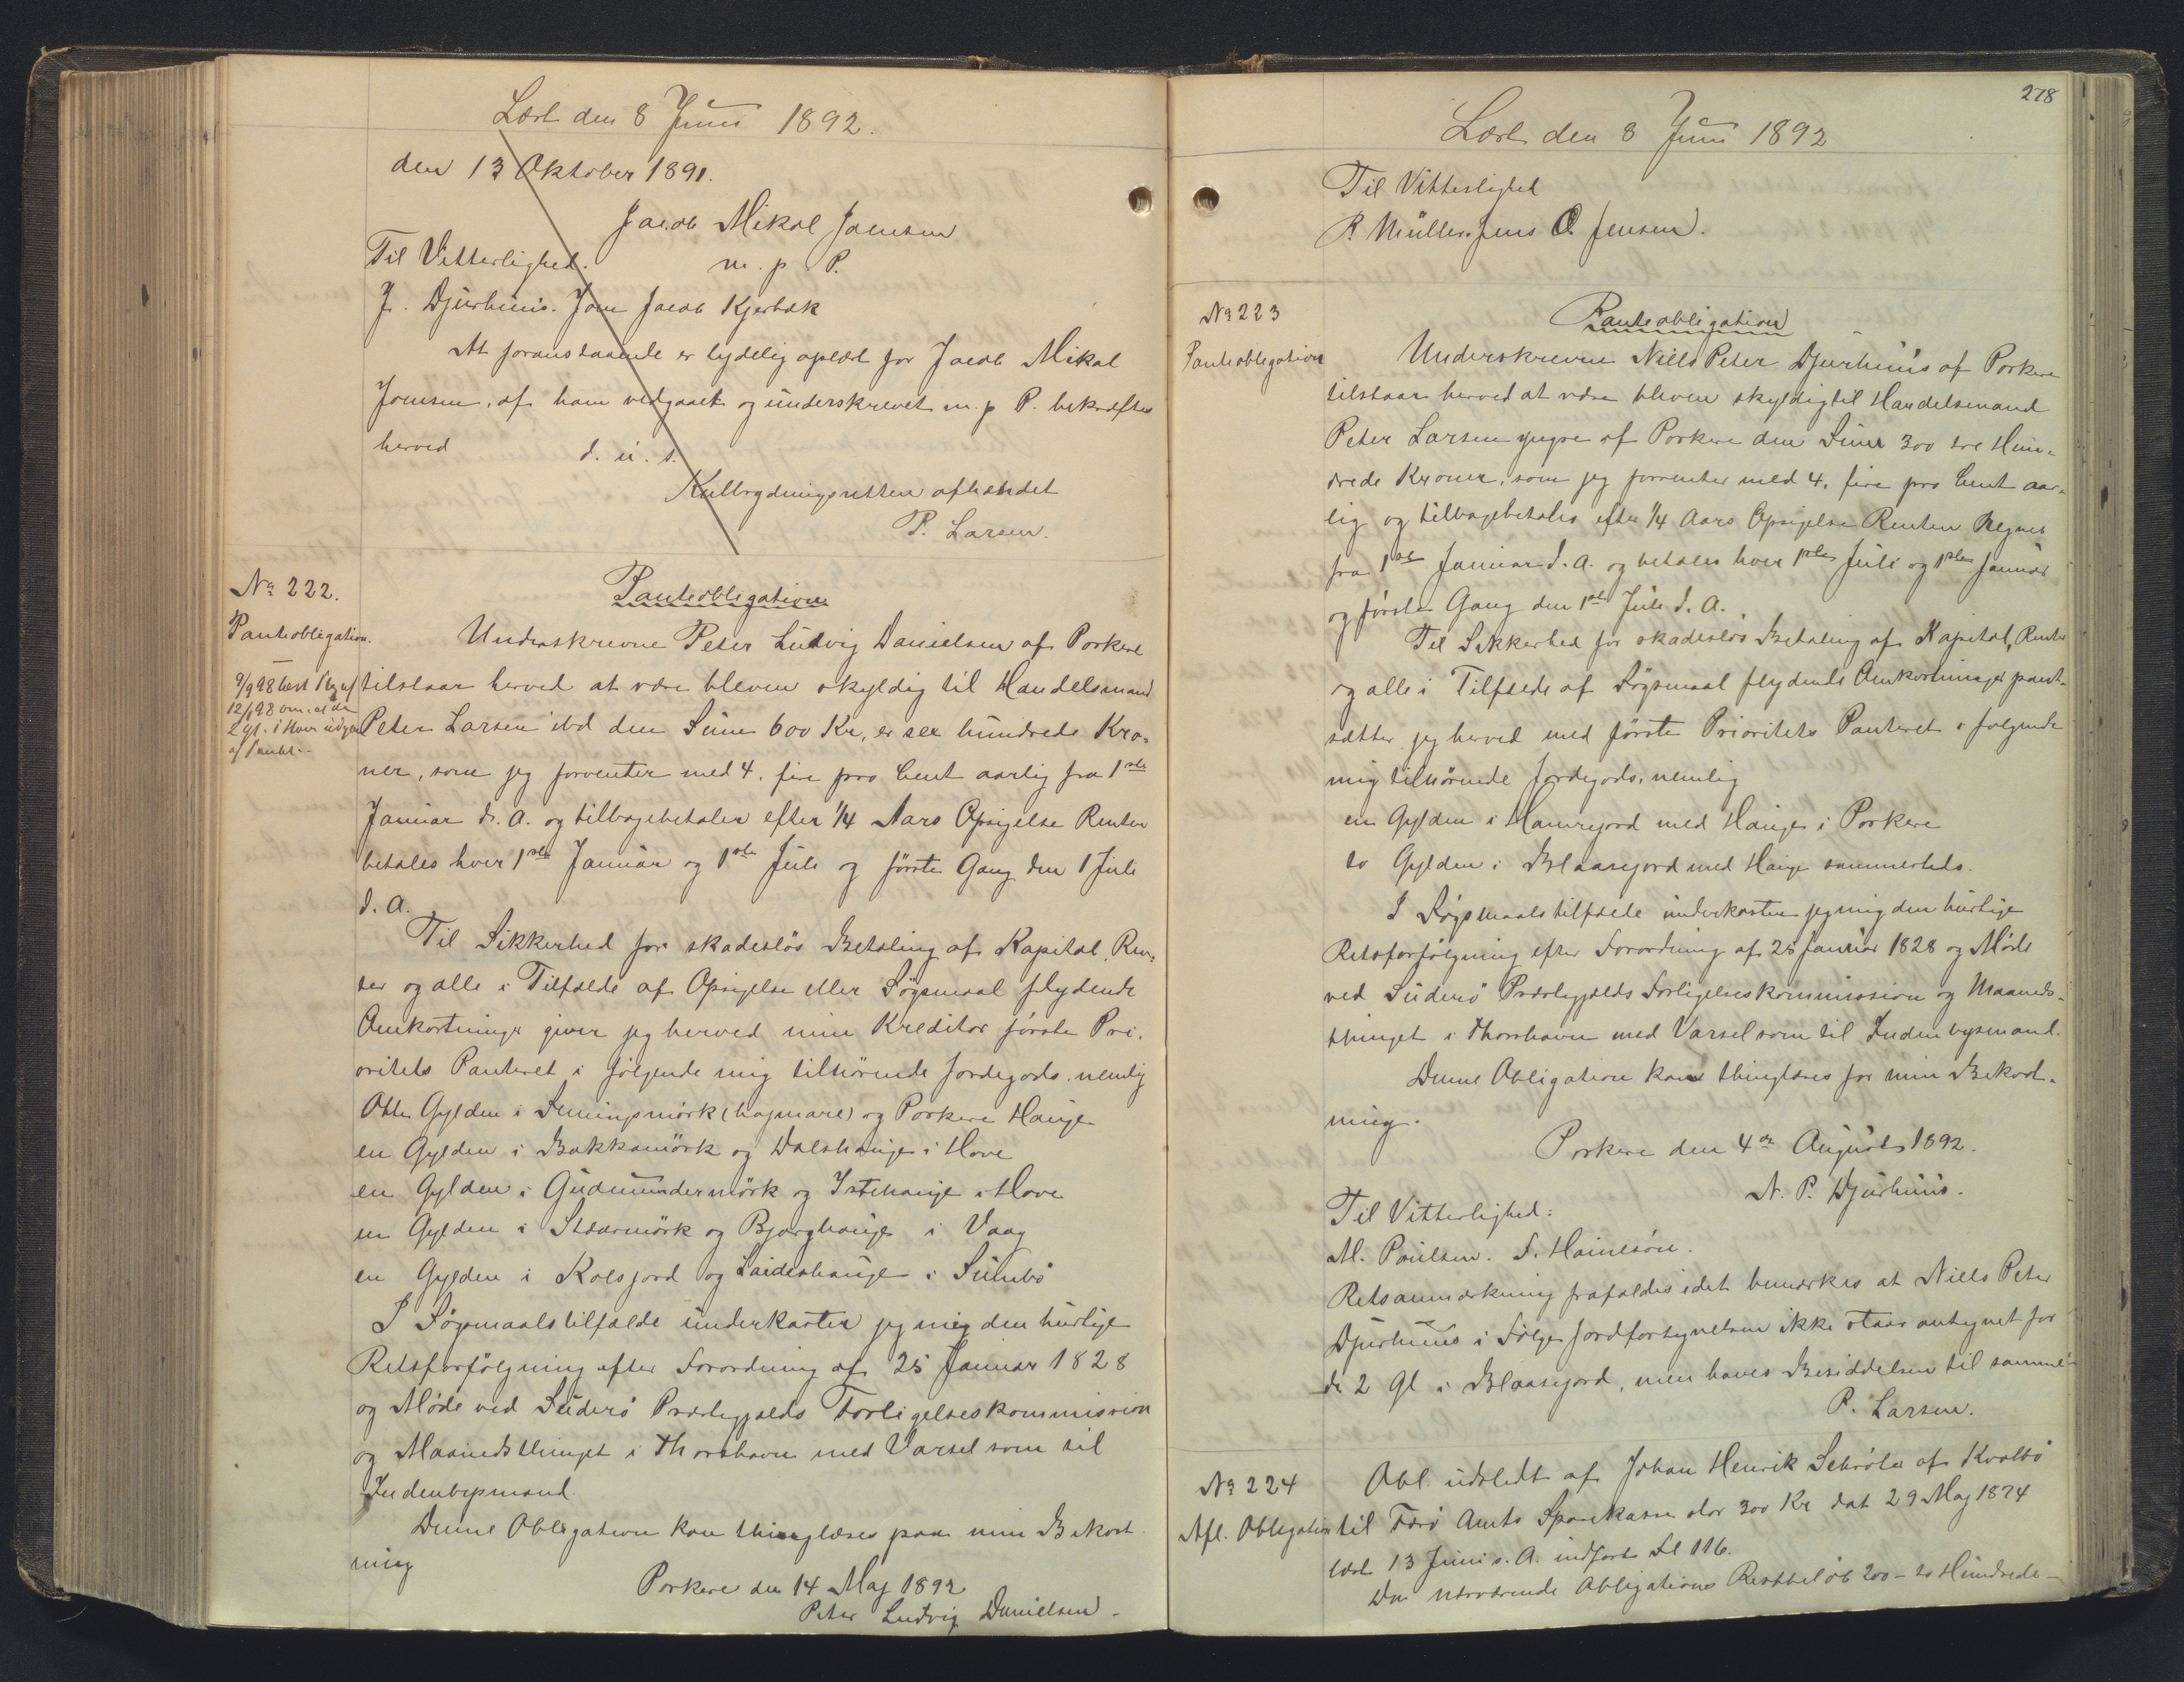 Læst den 8 Juni 1892.
den 13 Oktober 1891.
Jacob Mikal Joensen
Til Vitterlighed. m. p. P.
J. Djurhuus. Joen Jacob Kjerbæk
At foranstaaende er tydelig oplæst for Jacob Mikal
Joensen, af ham vedgaaet og underskrevet m. p P. bekræftes
herved d. u. s.
Kulbrydningsretten afhændet
P. Larsen.
No 222.
Panteobligation.
9/9 98
12/9 98
Panteobligation
Underskrevne Peter Ludvig Danielsen af Porkere
tilstaar herved at være bleven skyldig til Handelsmand
Peter Larsen ibd den Sum 600 Kr, er sex hundrede Kro-
ner, som jeg forrenter med 4. fire pro Cent aarlig fra 1ste
Januar d. A. og tilbagebetaler efter 1/4 Aars Opsigelse Renten
betales hver 1ste Januar og 1ste Juli og første Gang den 1 Juli
d. A.
Til Sikkerhed for skadesløs Betaling af Kapital, Ren-
ter og alle i Tilfælde af Opsigelse eller Søgsmaal flydende
Omkostninger giver jeg herved min Kreditor første Pri-
oritets Panteret i følgende mig tilhørende Jordegods, nemlig
Otte Gylden i (hagmare) og Porkere Hauge
en Gylden i Bakkamörk og Dalshauge i Hove
en Gylden i Gudmundermörk og Istehauge i Hove
en Gylden i Stdarmörk og Bjarghauge i Vaag
en Gylden i Kolsjord og Laideshauge i Sumbö
I Søgsmaalstilfælde underkaster jeg mig den hurtige
Retsforfølgning efter Forordning af 25 Januar 1828
og Møde ved Suderø Præstegjælds Forligelseskommission
og Maanedsthinget i Thorshavn med Varsel som til
Indenbysmand.
Denne Obligation kan thinglæses paa min Bekost
ning
Porkere den 14 Maj 1892
Peter Ludvig Danielsen.
278
Læst den 8 Juni 1892
Til Vitterlighed
P. Müller. Jens O. Jensen.
No 223
Panteobligation
Panteobligation
Underskrevne Niels Peter Djurhuus af Porkere
tilstaar herved at være bleven skyldig til Handelsmand
Peter Larsen yngre af Porkere den Sum 300 tre Hun-
drede Kroner, som jeg forrenter med 4. fire pro Cent aar-
lig og tilbagebetales efter 1/4 Aars Opsigelse Renten regnes
fra 1ste Januar d. A. og betales hver 1ste Juli og 1ste Januar
og første Gang den 1ste Juli d. A.
Til Sikkerhed for skadesløs Betaling af Kapital, Renter
og alle i Tilfælde af Søgsmaal flydende Omkostninger pant-
sætter jeg herved med første Prioritets Panteret i følgende
mig tilhørende Jordegods, nemlig
en Gylden i Hamrejord med Hauge i Porkere
to Gylden i Blaasejord med Hauge sammesteds.
I Søgsmaalstilfælde underkaster jeg mig den hurtige
Retsforfølgning efter Forordning af 25 Januar 1828 og Møde
ved Suderø Præstegjælds Forligelseskommission og Maaneds-
thinget i Thorshavn med Varsel som til Indenbysmand.
Denne Obligation kan thinglæses for min Bekost-
ning.
Porkere den 4de August 1892.
N. P. Djurhuus.
Til Vitterlighed:
M. Poulsen. S. Haineson.
Retsanmærkning frafaldes idet bemærkes at Niels Peter
Djurhuus i Følge Jordfortegnelsen ikke staar antegnet for
de 2 Gl i Blaasejord, men haves Besiddelsen til samme
P. Larsen.
No 224
Afl. Obligation
Obl. udstedt af Johan Henrik Schröter af Kvalbø
til Færø Amts Sparekasse stor 300 Kr dat 29 Maj 1874
læst 13 Juni s. A. indført Fol 116.
Da nærværende Obligations Restbeløb 200 - to Hundrede -